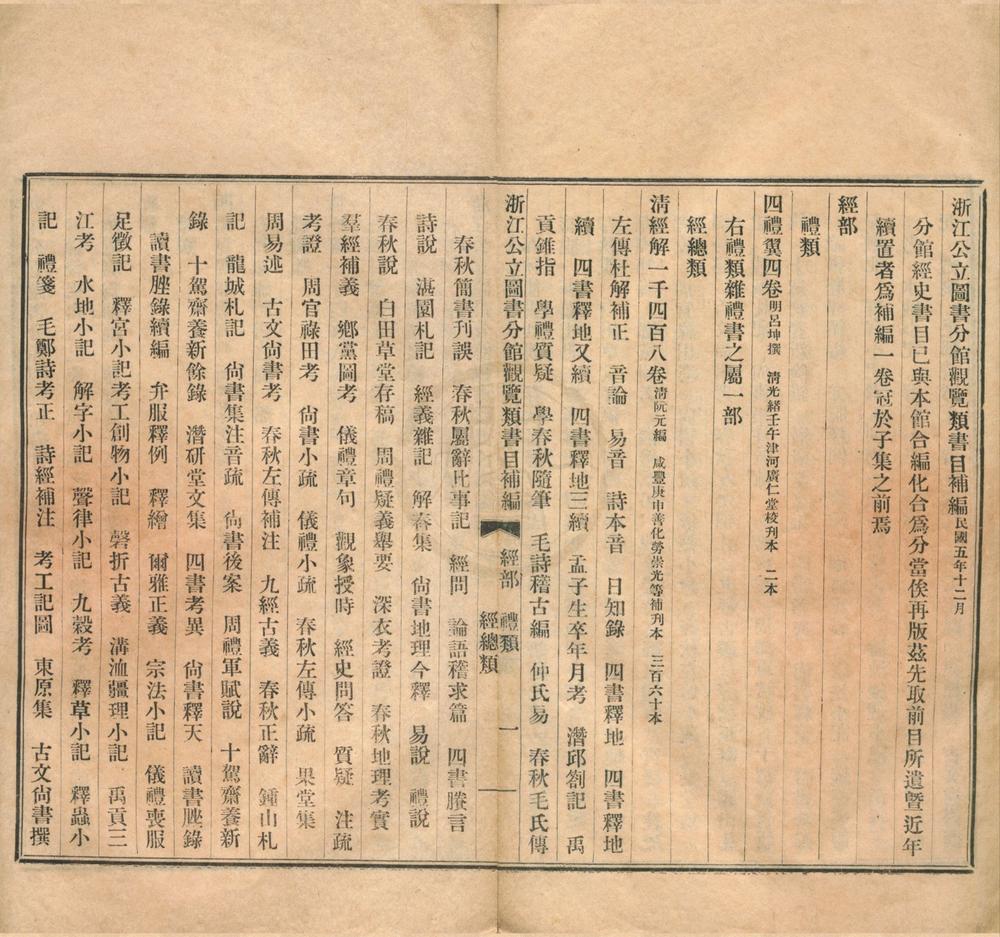 浙江公立圖書分館觀覽類書目補編民國五年十二月
分館經史書目已與本館合編化合爲分當俟再版茲先取前目所遺曁近年
續置者爲補編一卷冠於子集之前焉
經部
禮類
四禮翼四卷明呂坤撰 淸光緒壬午津河廣仁堂校刊本 二本
右禮類雜禮書之屬一部
經總類
淸經解一千四百八卷淸阮元編 咸豐庚申善化勞崇光等補刊本 三百六十本
左傳杜解補正 音論 易音 詩本音 日知錄 四書釋地 四書釋地
續 四書釋地又續 四書釋地三續 孟子生卒年月考 潛邱劄記 禹
貢錐指 學禮質疑 學春秋隨筆 毛詩稽古編 仲氏易 春秋毛氏傳
浙江公立圖書分館觀覽類書目補編 經部 禮類 經總類 一
春秋簡書刊誤 春秋屬辭比事記 經問 論語稽求篇 四書賸言
詩說 湛園札記 經義雜記 解舂集 尙書地理今釋 易說 禮說
春秋說 白田草堂存稿 周禮疑義舉要 深衣考證 春秋地理考實
羣經補義 鄕黨圖考 儀禮章句 觀象授時 經史問答 質疑 注疏
考證 周官祿田考 尙書小疏 儀禮小疏 春秋左傳小疏 果堂集
周易述 古文尙書考 春秋左傳補注 九經古義 春秋正辭 鍾山札
記 龍城札記 尙書集注音疏 尙書後案 周禮軍賦說 十駕齋養新
錄 十駕齋養新餘錄 潛研堂文集 四書考異 尙書釋天 讀書脞錄
讀書脞錄續編 弁服釋例 釋繒 爾雅正義 宗法小記 儀禮喪服
足徵記 釋宮小記 考工創物小記 磬折古義 溝洫疆理小記 禹貢三
江考 水地小記 解字小記 聲律小記 九穀考 釋草小記 釋蟲小
記 禮箋 毛鄭詩考正 詩經補注 考工記圖 東原集 古文尙書撰